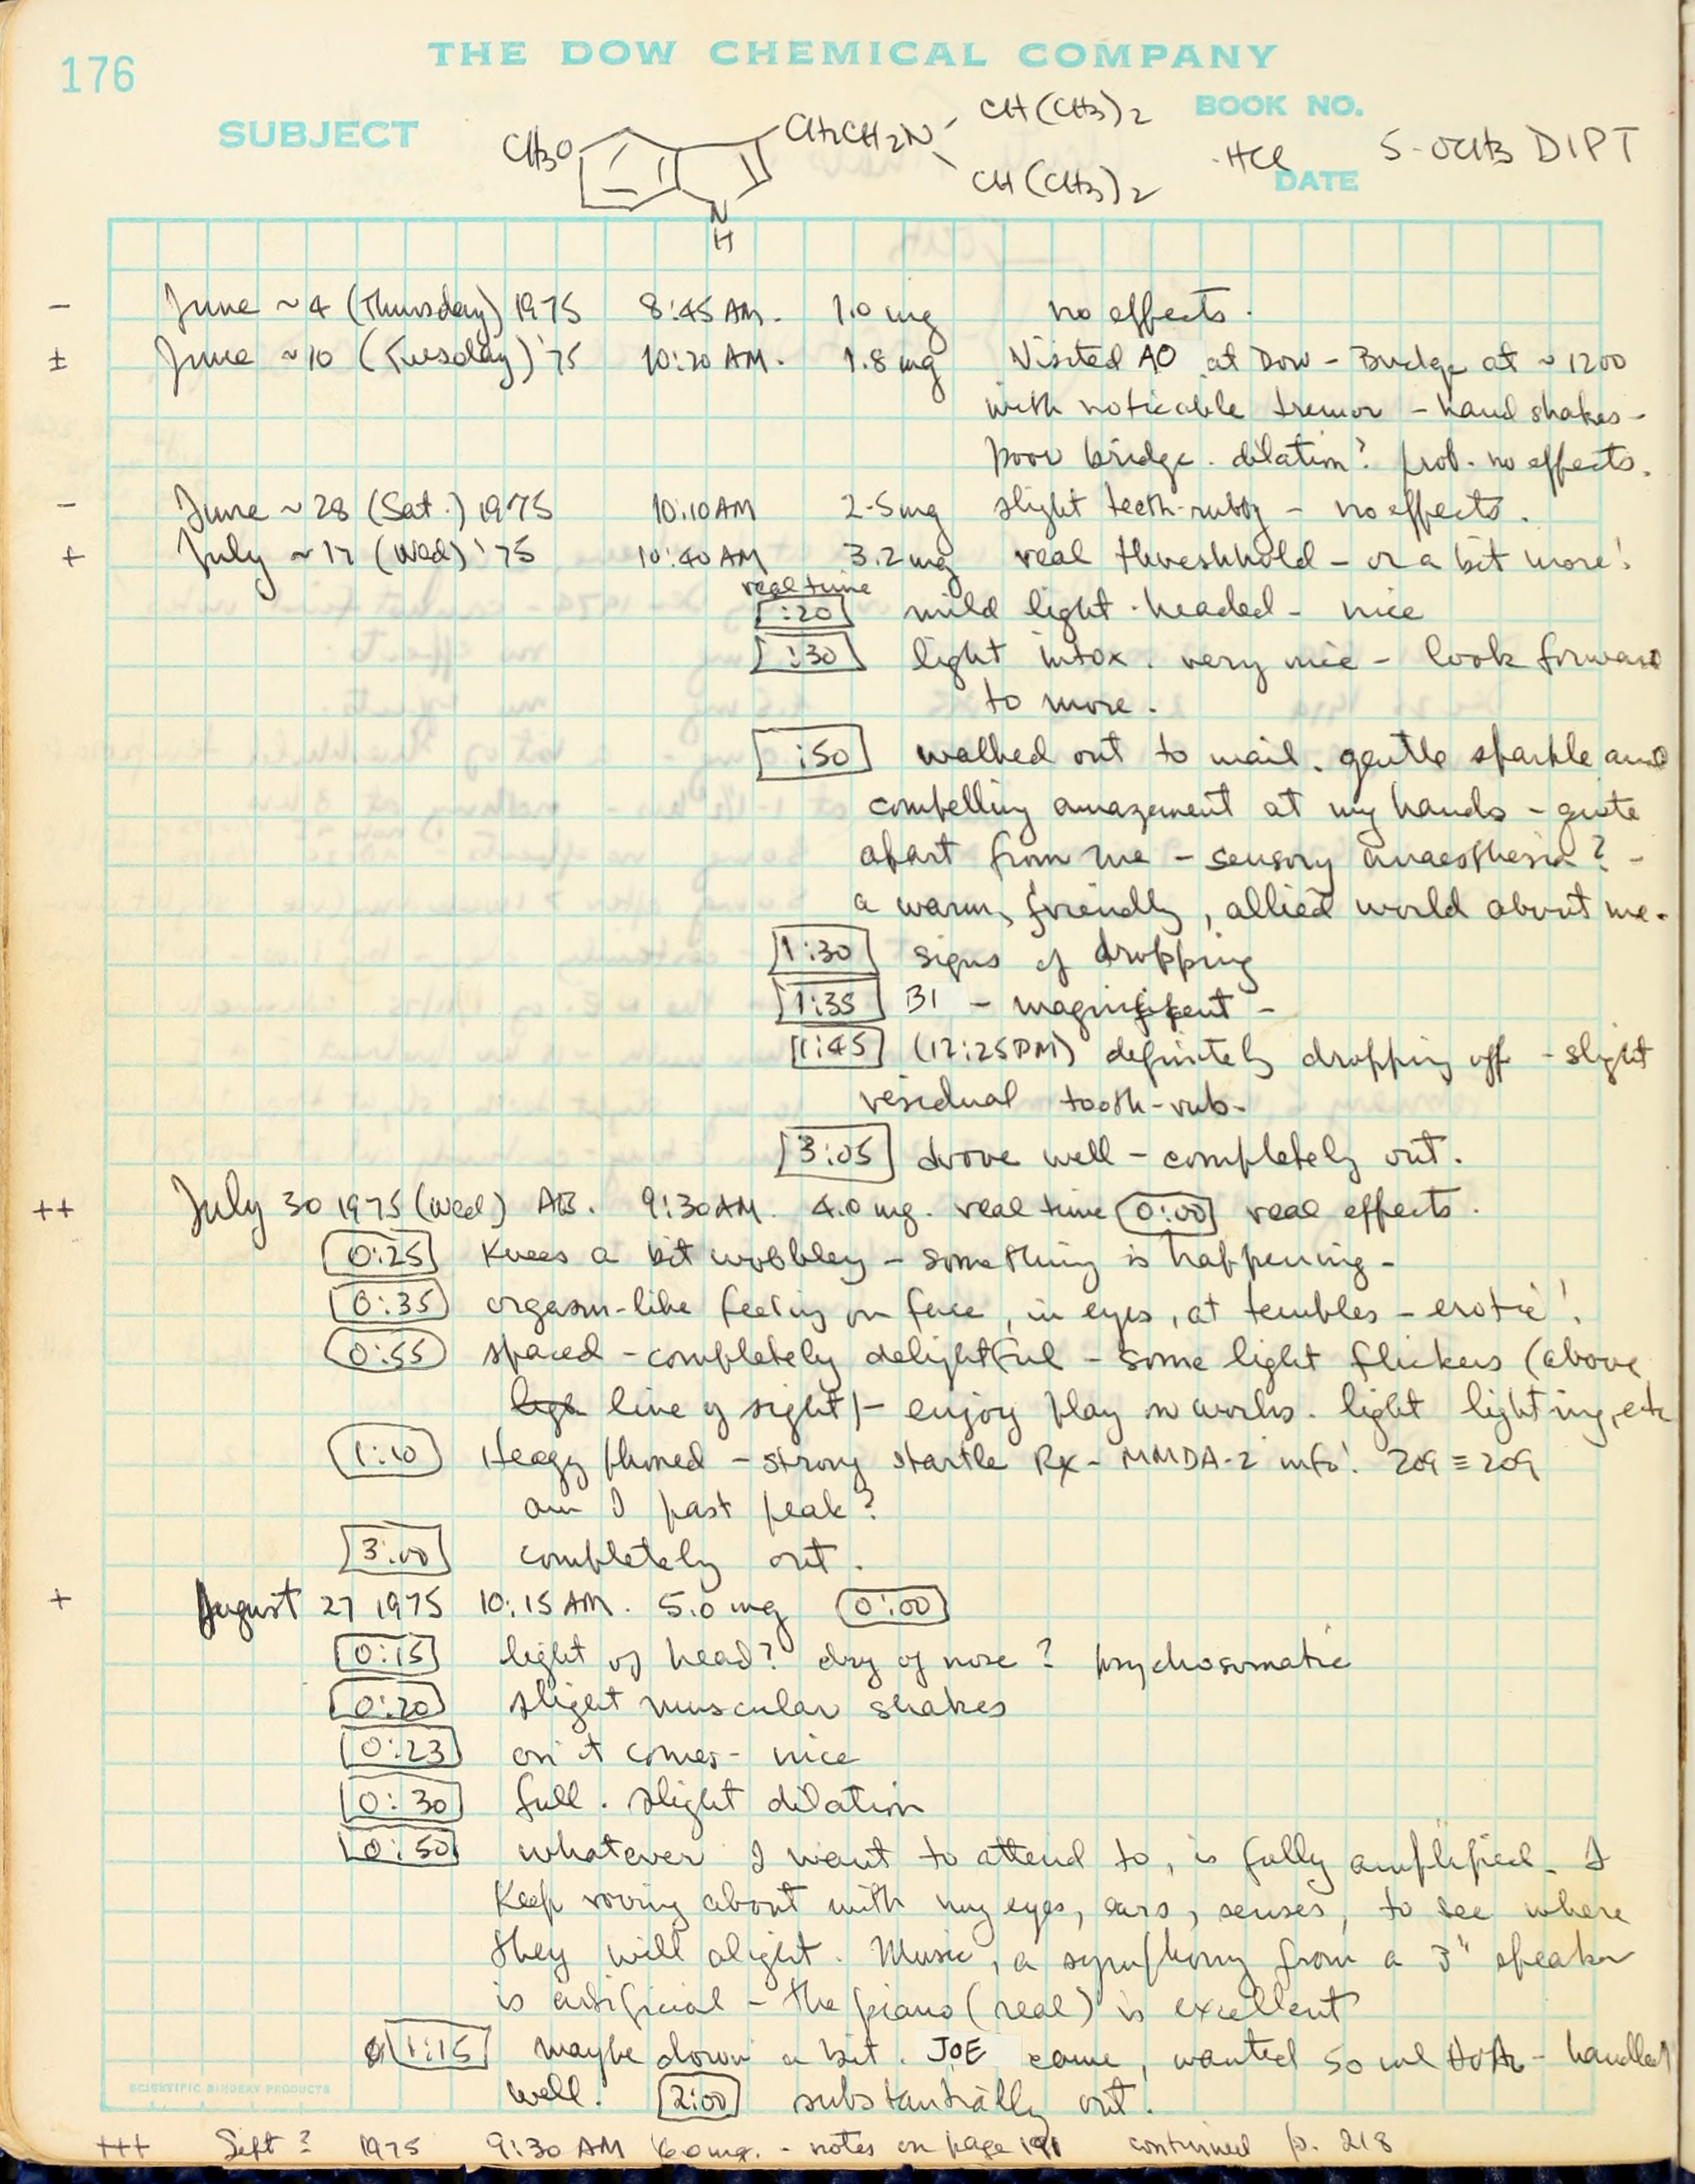 176
THE DOW CHEMICAL COMPANY
SUBJECT
BOOK NO.
DATE
CH3O
CH2CH2N
CH(CH3)2
CH(CH3)2
N
H
·HCl
5-OCH3 DIPT
- June ~4 (Thursday) 1975 8:45 AM. 1.0 mg no effects.
± June ~10 (Tuesday) '75 10:20 AM. 1.8 mg Visited AO at Dow - Bridge at ~1200
with noticable tremor - hand shakes -
poor bridge. dilation? prob. no effects.
- June ~28 (Sat.) 1975 10:10 AM 2.5 mg slight teeth-rubbg - no effects.
+ July ~17 (Wed) '75 10:40 AM 3.2 mg real threshhold - or a bit more!
real time
:20 mild light-headed - nice
:30 light intox. very nice - look forward
to more.
:50 walked out to mail. gentle sparkle and
compelling amazement at my hands - quite
apart from me - sensory anaesthesia? -
a warm, friendly, allied world about me.
1:30 signs of dropping
1:35 B1 - magnificent -
1:45 (12:25 PM) definitely dropping off - slight
residual tooth-rub.
3:05 drove well - completely out.
++ July 30 1975 (Wed) 9:30 AM. 4.0 mg. real time 0:00 real effects.
0:25 Knees a bit wobbley - something is happening -
0:35 orgasm-like feeling on face, in eyes, at temples - erotic!
0:55 spaced - completely delightful - some light flickers (above
line of sight) - enjoy play on works. light lighting, etc
1:10 phoned - strong startle Rx - MMDA-2 info! 209 ≡ 209
am I past peak?
3:00 completely out.
+ August 27 1975 10:15 AM. 5.0 mg 0:00
0:15 light of head? dry of nose? psychosomatic
0:20 slight muscular shakes
0:23 on it comes - nice
0:30 full. slight dilation
0:50 whatever I want to attend to, is fully amplified. I
keep roving about with my eyes, ears, senses, to see where
they will alight. Music, a symphony from a 3" speaker
is artificial - the piano (real) is excellent
1:15 maybe down a bit. JOE came, wanted 50 ml - handled
well. 2:00 substantially out.
SCIENTIFIC BINDERY PRODUCTS
+++ Sept ? 1975 9:30 AM 6.0 mg. - notes on page 191 continued p. 218